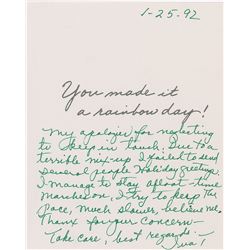 1-25-92
You made it
a rainbow day!
My apologies for neglecting
to keep in touch. Due to a
terrible mix-up I failed to send
several people Holiday greetings.
I manage to stay afloat - time
marches on, I try to keep the
pace, much slower, believe me,
Thanx for your concern -
Take care, best regards -
Eva